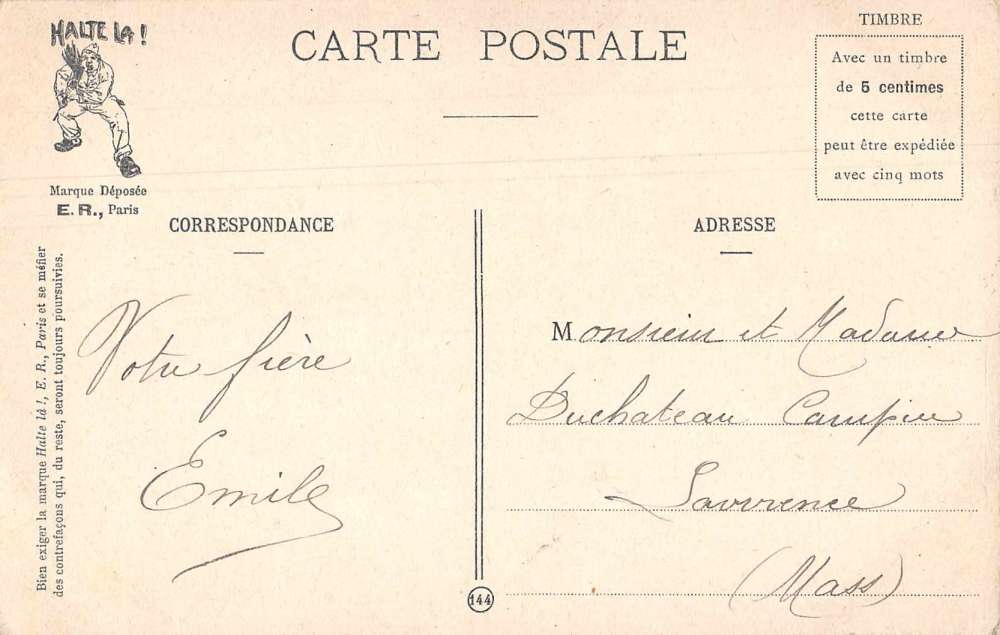 HALTE LÀ!
Marque Déposée
E. R., Paris
CARTE POSTALE
TIMBRE
Avec un timbre
de 5 centimes
cette carte
peut être expédiée
avec cinq mots
CORRESPONDANCE
ADRESSE
Bien exiger la marque Halte là!, E. R., Paris et se méfier
des contrefaçons qui, du reste, seront toujours poursuivies.
Votre frère
Emile
Monsieur et Madame
Duchateau
Lawrence
(Mass)
144